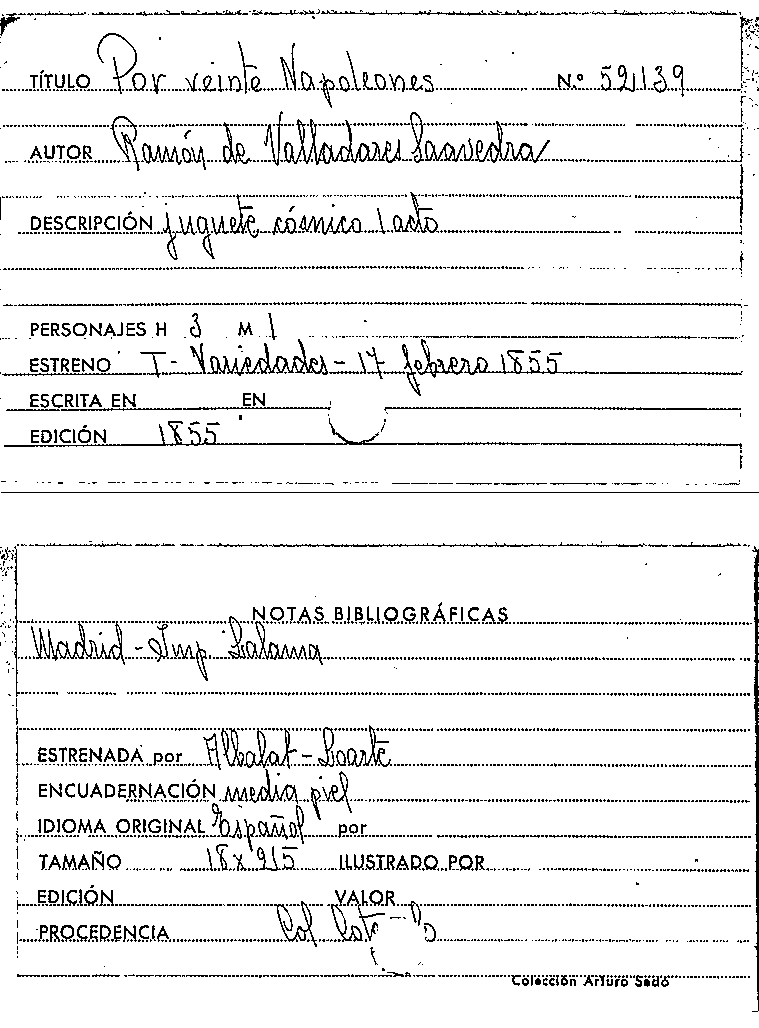 TÍTULO Por veinte Napoleones N.º 52139
AUTOR Ramón de Valladares Saavedra
DESCRIPCIÓN juguete cómico 1 acto
PERSONAJES H 3 M 1
ESTRENO T- Variedades - 17 febrero 1855
ESCRITA EN EN
EDICIÓN 1855
NOTAS BIBLIOGRÁFICAS
Madrid - Imp.
ESTRENADA por Albalat - Loarte
ENCUADERNACIÓN media piel
IDIOMA ORIGINAL Español por
TAMAÑO 18x ILUSTRADO POR
EDICIÓN VALOR
PROCEDENCIA Col
Colección Arturo Sedó